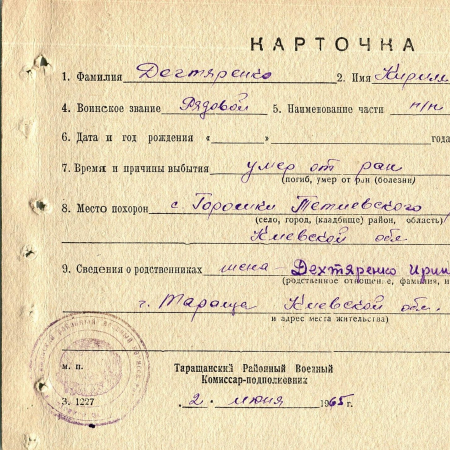 КАРТОЧКА
1. Фамилия Дегтяренко 2. Имя Кирилл
4. Воинское звание Рядовой 5. Наименование части п/п
6. Дата и год рождения « » года
7. Время и причины выбытия умер от ран
(погиб, умер от ран (болезни)
8. Место похорон с. Горошки Тетиевского
(село, город, (кладбище) район, область)
Киевской обл.
9. Сведения о родственниках жена - Дехтяренко Ирин
(родственное отношение, фамилия, и
г. Тараща Киевской обл.
и адрес места жительства)
м. п.
Таращанский Районный Военный
Комиссар-подполковник
З. 1227
„ 2. „ июня 1965 г.